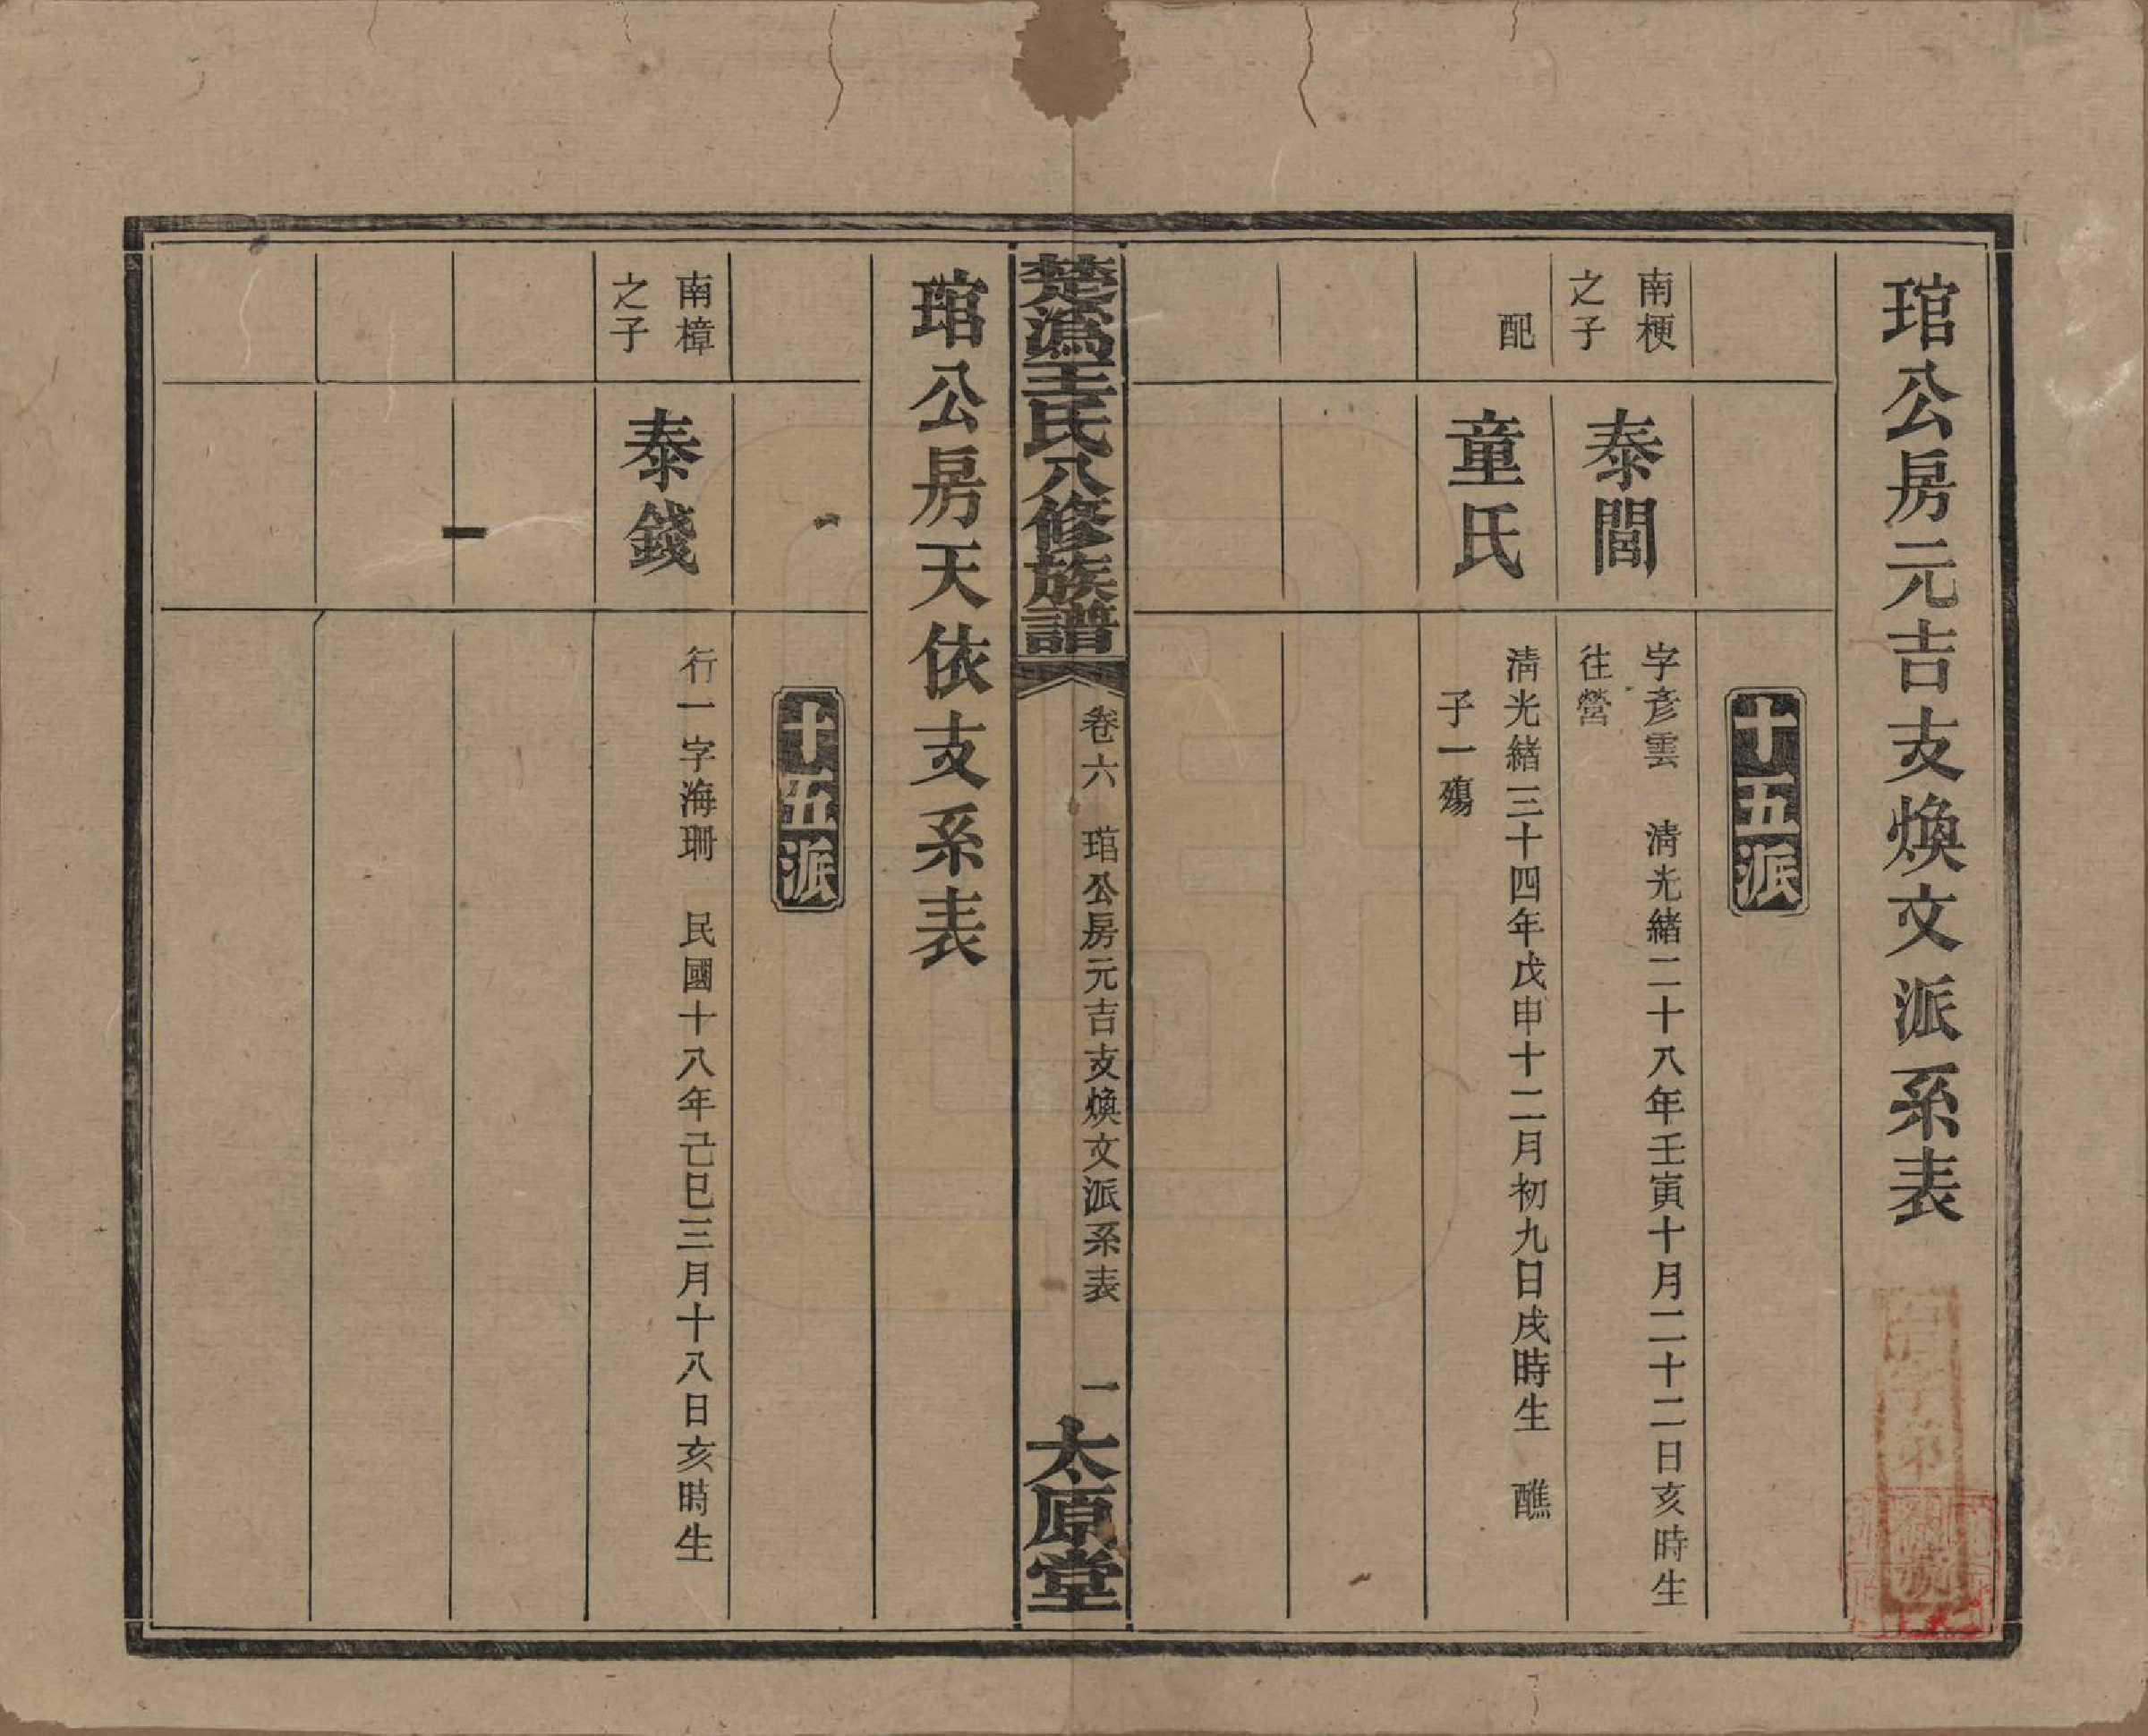 琯公房元吉支煥文派系表
十五派
南梗
之子
泰閭
字彥雲　清光緒二十八年壬寅十月二十二日亥時生
往營
配
童氏
清光緒三十四年戊申十二月初九日戌時生　醮
子一殤
楚溈王氏八修族譜
卷六　琯公房元吉支煥文派系表　一
太原堂
琯公房天依支系表
十五派
南樟
之子
泰錢
行一字海珊　民國十八年己巳三月十八日亥時生